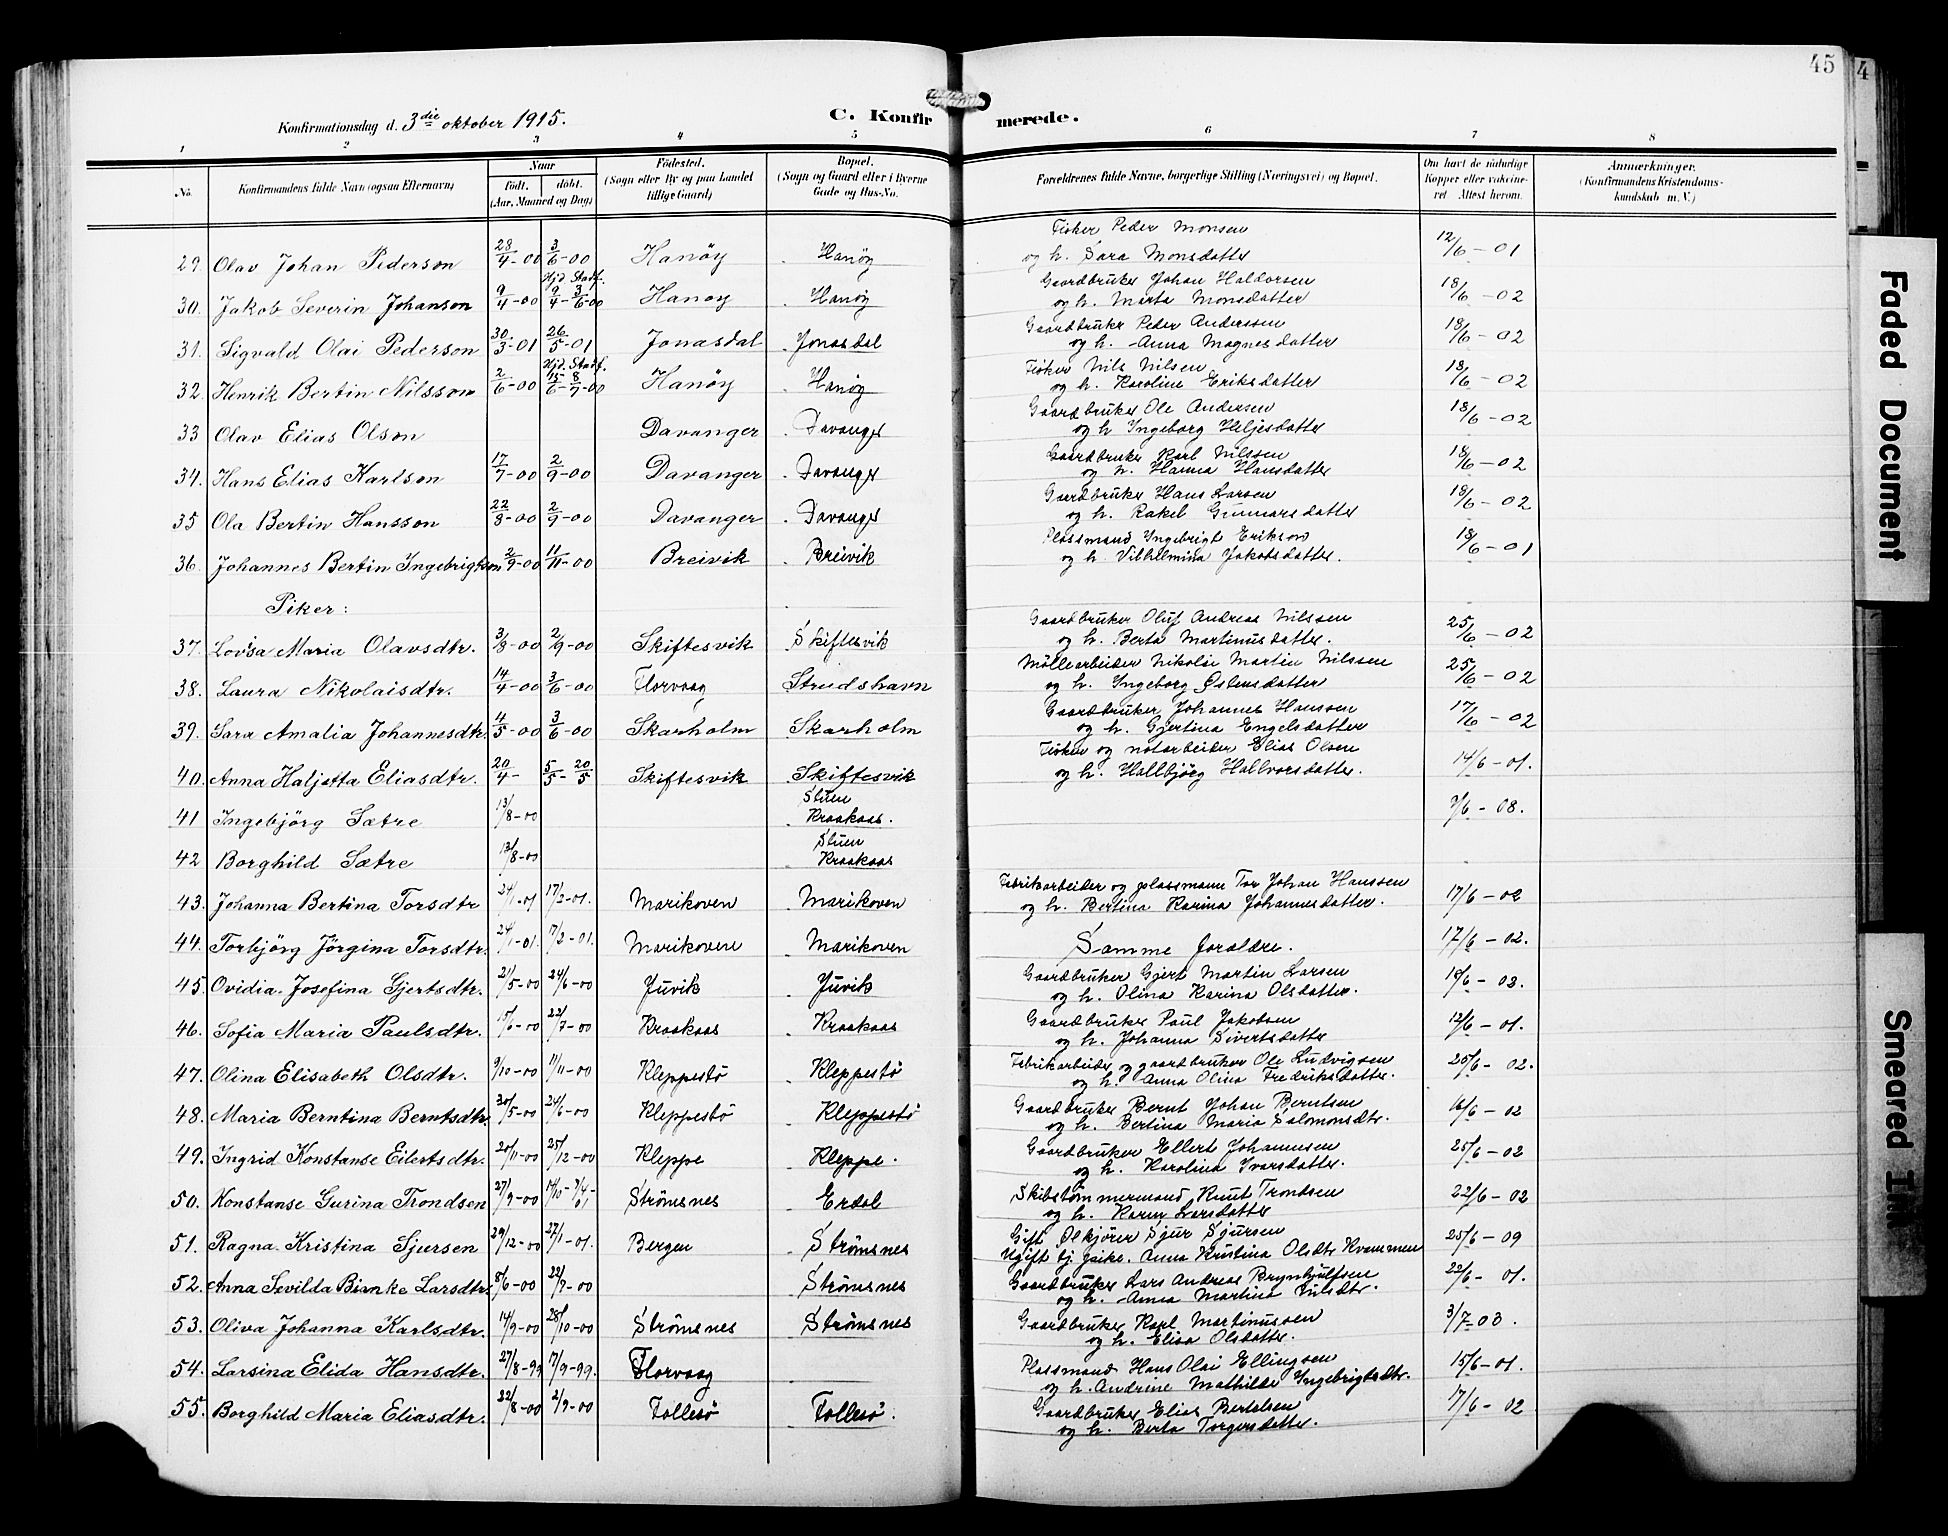 45
4
Konfirmationsdag d. 3die oktober 1915.
C. Konfirmerede.
1 2 3 4 5 6 7 8
No.
Konfirmandens fulde Navn (ogsaa Efternavn)
Naar
født. døbt.
(Aar, Maaned og Dag)
Fødested.
(Sogn eller By og paa Landet tillige Gaard)
Bopæl.
(Sogn og Gaard eller i Byerne Gade og Hus-No.
Forældrenes fulde Navne, borgerlige Stilling (Næringsvei) og Bopæl.
Om havt de naturlige Kopper eller vakcineret. Attest herom.
Anmærkninger.
(Konfirmandens Kristendomskundskab m. V.)
29. Olav Johan Pederson 28/4-00 3/6-00 Hanöy Hanöy Fisker Peder Monsen og h. Sara Monsdatter 12/6-01
30. Jakob Severin Johanson 9/4-00 Hjd. 9/4 Stadf. 3/6-00 Hanöy Hanöy Gaardbruker Johan Haldorsen og h. Marta Monsdatter 18/6-02
31. Sigvald Olai Pederson 30/3-01 26/5-01 Jonasdal Jonasdal Gaardbruker Peder Anderssen og h. Anna Magnesdatter 18/6-02
32. Henrik Bertin Nilsson 2/6-00 Hjd. 15/6 Stadf. 8/7-00 Hanöy Hanöy Fisker Nils Nilsen og h. Karoline Eriksdatter 18/6-02
33 Olav Elias Olson Davanger Davanger Gaardbruker Ole Andersen og h Ingeborg Heljesdatter 18/6-02
34. Hans Elias Karlson 17/7-00 2/9-00 Davanger Davanger Gaardbruker Karl Nilssen og h. Hanna Hansdatter 18/6-02
35 Ola Bertin Hansson 22/8-00 2/9-00 Davanger Davanger Gaardbruker Hans Larsen og h. Rakel Gunnarsdatter 18/6-02
36. Johannes Bertin Ingebrigtson 2/9-00 11/11-00 Breivik Breivik Plassmand Ingebrigt Erikson og h Vilhelmina Jakobsdatter. 18/6-01
Piker:
37. Lovisa Maria Olavsdtr. 3/8-00 2/9-00 Skiftesvik Skiftesvik Gaardbruker Oluf Andreas Nilssen og h. Berta Martinusdatter. 25/6-02
38. Laura Nikolaisdtr. 14/4-00 3/6-00 Florvaag Strudshavn Möllearbeider Nikolai Martin Nilssen og h. Ingeborg Östensdatter 25/6-02
39. Sara Amalia Johannesdtr. 4/5-00 3/6-00 Skarholm Skarholm Gaardbruker Johannes Hanson og h. Gjertina Engelsdatter 17/6-02
40. Anna Haljetta Eliasdtr. 20/4- 5/5-20/5 Skiftesvik Skiftesvik Fisker og notarbeider Elias Olsen og h. Hallbjörg Hallvorsdatter. 14/6-01.
41 Ingebjörg Sætre 13/8-00 Stuen Kraakaas. 7/6-08.
42 Borghild Sætre 13/8-00 Stuen Kraakaas
43. Johanna Bertina Torsdtr 24/1-01 17/2-01. Marikoven Marikoven Fabrikarbeider og plassmann Tor Johan Hanssen og h. Bertina Karina Johannesdatter. 17/6-02
44. Torbjörg Jörgina Torsdtr. 24/1-01. 17/2-01. Marikoven Marikoven Samme foraldre. 17/6-02.
45. Ovidia Josefina Gjertsdtr. 21/5-00 24/6-00 Juvik Juvik Gaardbruker Gjert Martin Larsen og h. Olina Karina Olsdatter. 18/6-03.
46. Sofia Maria Paulsdtr. 15/6-00 22/7-00 Kraakaas Kraakaas Gaardbruker Paul Jakobsen og h. Johanna Sivertsdatter 12/6-01.
47. Olina Elisabeth Olsdtr. 9/10-00 11/11-00 Kleppestö Kleppestö Fabrikarbeider og gaardbruker Ole Ludvigsen og h. Anna Olina Fredriksdatter. 25/6-02.
48. Maria Berntina Berntsdtr. 30/5-00 24/6-00 Kleppestö Kleppestö Gaardbruker Bernt Johan Berntsen og h. Bertina Maria Salomonsdtr. 16/6-02
49. Ingrid Konstanse Eilertsdtr. 20/11-00 25/12-00 Kleppe Kleppe. Gaardbruker Ellert Johannesen og h. Karolina Ivarsdatter. 25/6-02
50. Konstanse Gurina Trondsen 27/9-00 Strömsnes Erdal Skibstömmermand Knut Trondsen og h. Karen Larsdatter 22/6-02
51. Ragna Kristina Sjursen 29/12-00 27/1-01. Bergen Strömsnes Gift Ölkjörer Sjur Sjursen Ugift tj. paike. Anna Kristina Olsdtr Kvammen 25/6-09
52. Anna Sevilda Bianke Larsdtr. 8/6-00 22/7-00 Strömsnes Gaardbruker Lars Andreas Brynhjulfsen og h. Anna Martina Nilsdtr. 22/6-01.
53. Oliva Johanna Karlsdtr. 14/9-00 28/10-00 Strömsnes Strömsnes Gaardbruker Karl Martinussen og h. Elisa Olsdatter. 3/7-03.
54. Larsina Elida Hansdtr. 27/8-99 17/9-99. Florvaag Plassmand Hans Olai Ellingsen og h. Andrine Mathilde Ingebrigtsdtr. 15/6-01.
55. Borghild Maria Eliasdtr. 22/8-00 2/9-00 Follesö Follesö. Gaardbruker Elias Bertelsen og h. Berta Torgersdatter. 17/6-02
Faded Document
Smeared Ink